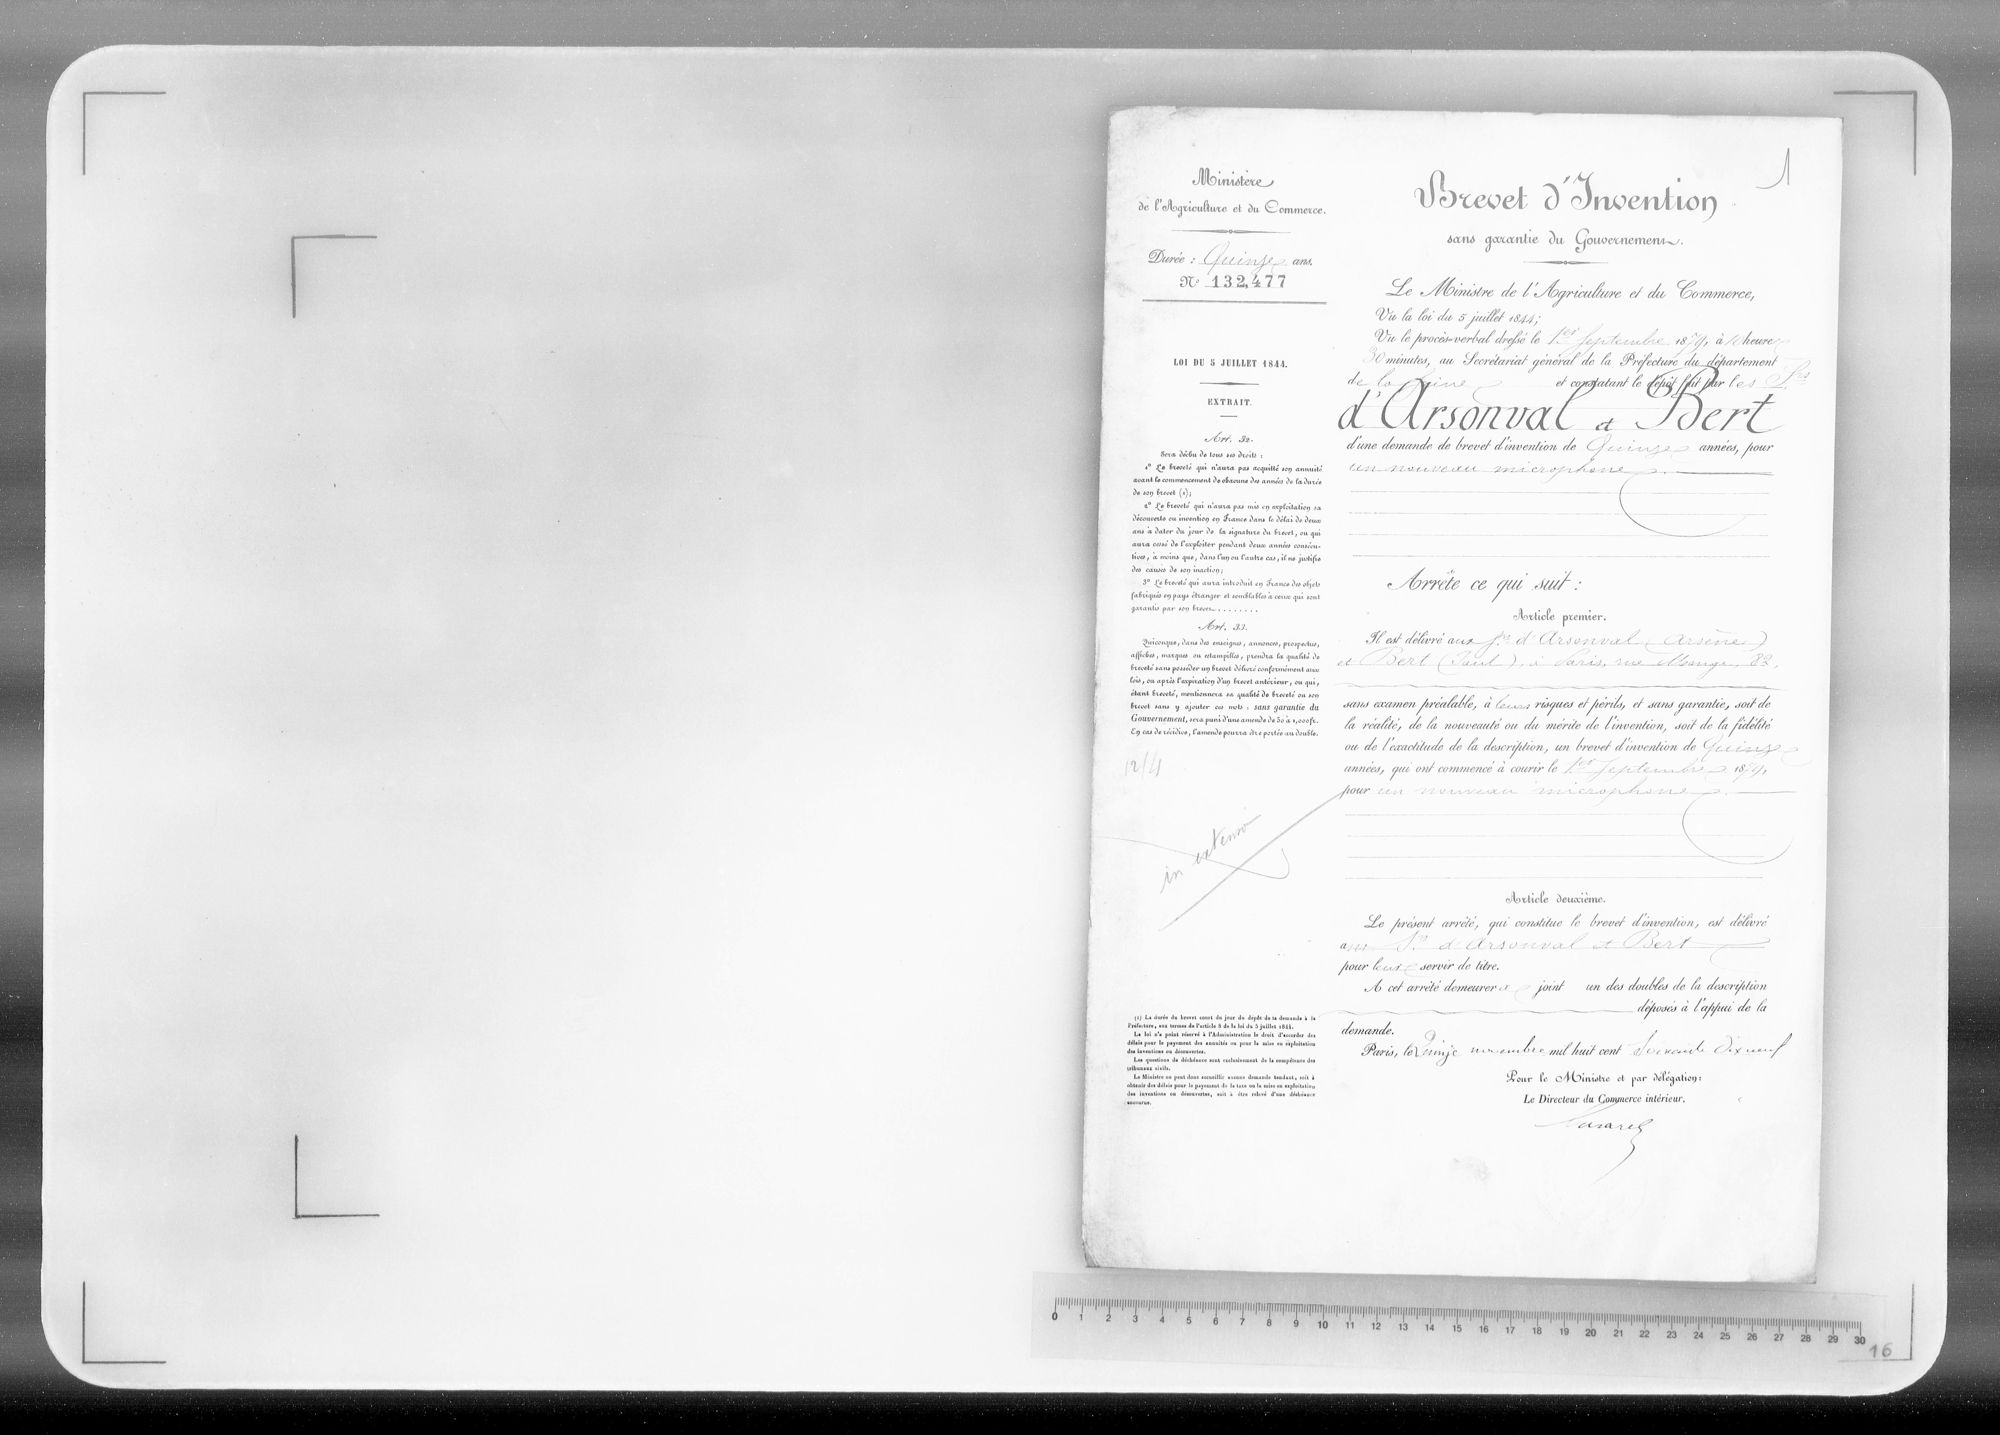 Ministère
de l'Agriculture et du Commerce.
Durée : Quinze ans.
N° 132,477
LOI DU 5 JUILLET 1844.
EXTRAIT.
Art. 32.
Sera déchu de tous ses droits :
1° Le breveté qui n'aura pas acquitté son annuité
avant le commencement de chacune des années de la durée
de son brevet (1);
2° Le breveté qui n'aura pas mis en exploitation sa
découverte ou invention en France dans le délai de deux
ans à dater du jour de la signature du brevet, ou qui
aura cessé de l'exploiter pendant deux années consécu-
tives, à moins que, dans l'un ou l'autre cas, il ne justifie
des causes de son inaction;
3° Le breveté qui aura introduit en France des objets
fabriqués en pays étranger et semblables à ceux qui sont
garantis par son brevet........
Art. 33.
Quiconque, dans des enseignes, annonces, prospectus,
affiches, marques ou estampilles, prendra la qualité de
breveté sans posséder un brevet délivré conformément aux
lois, ou après l'expiration d'un brevet antérieur, ou qui,
étant breveté, mentionnera sa qualité de breveté ou son
brevet sans y ajouter ces mots : sans garantie du
Gouvernement, sera puni d'une amende de 50 à 1,000 fr.
En cas de récidive, l'amende pourra être portée au double.
12/4
in extenso
(1) La durée du brevet court du jour du dépôt de la demande à la
Préfecture, aux termes de l'article 8 de la loi du 5 juillet 1844.
La loi n'a point réservé à l'Administration le droit d'accorder des
délais pour le payement des annuités ou pour la mise en exploitation
des inventions ou découvertes.
Les questions de déchéance sont exclusivement de la compétence des
tribunaux civils.
Le Ministre ne peut donc accueillir aucune demande tendant, soit à
obtenir des délais pour le payement de la taxe ou la mise en exploitation
des inventions ou découvertes, soit à être relevé d'une déchéance
encourue.
1
Brevet d'Invention
sans garantie du Gouvernement.
Le Ministre de l'Agriculture et du Commerce,
Vu la loi du 5 juillet 1844;
Vu le procès-verbal dressé le 1er Septembre 1879, à heure
30 minutes, au Secrétariat général de la Préfecture du département
de la Seine et constatant le dépôt fait par les Srs
d'Arsonval et Bert
d'une demande de brevet d'invention de Quinze années, pour
un nouveau microphone.
Arrête ce qui suit :
Article premier.
Il est délivré aux Srs d'Arsonval (Arsène)
et Bert (Paul), à Paris, rue Monge, 82,
sans examen préalable, à leurs risques et périls, et sans garantie, soit de
la réalité, de la nouveauté ou du mérite de l'invention, soit de la fidélité
ou de l'exactitude de la description, un brevet d'invention de Quinze
années, qui ont commencé à courir le 1er Septembre 1879,
pour un nouveau microphone.
Article deuxième.
Le présent arrêté, qui constitue le brevet d'invention, est délivré
aux Srs d'Arsonval et Bert
pour leur servir de titre.
A cet arrêté demeurera joint un des doubles de la description
déposés à l'appui de la
demande.
Paris, le Quinze novembre mil huit cent Soixante Dix neuf
Pour le Ministre et par délégation:
Le Directeur du Commerce intérieur.
0 1 2 3 4 5 6 7 8 9 10 11 12 13 14 15 16 17 18 19 20 21 22 23 24 25 26 27 28 29 30
16